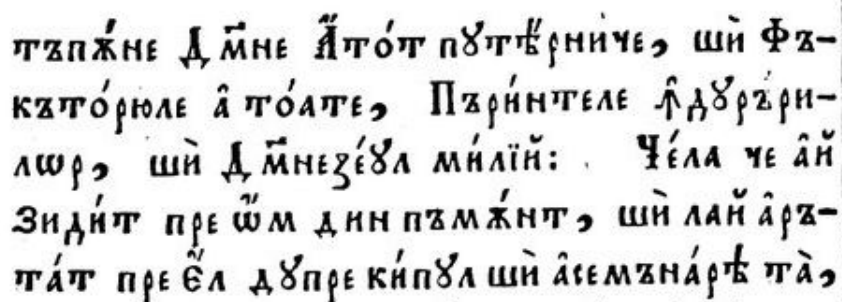 тъпѫ́не Дм҃не А҆́то́т пꙋтѣ́рни́че, шѝ Фъ-
къто́рюле а҆ то́ате, Пъри́нтеле ꙟ҆дꙋръ́ри-
лѡр, шѝ Дм҃незе́ꙋл ми́лїй: Че́ла че а҆й
Зиди́т пре ѡ҆́м дин пъмѫ́нт, шѝ лай а҆ръ-
та́т пре Є҆́л дꙋпре ки́пꙋл шѝ а҆семъна́рѣ та̀,